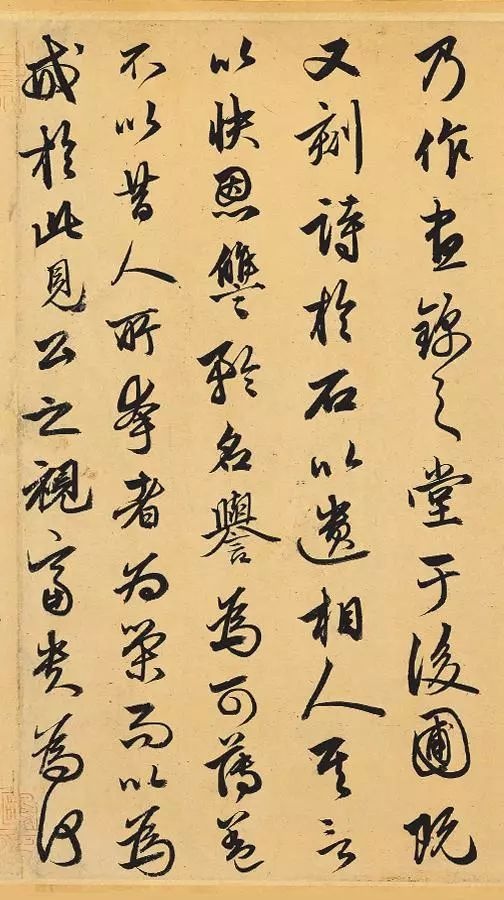 乃作昼錦之堂于後圃既
又刻詩於石以遺相人其言
以快恩讐矜名譽為可薄蓋
不以昔人所夸者為榮而以為
戒於此見公之視富貴為何